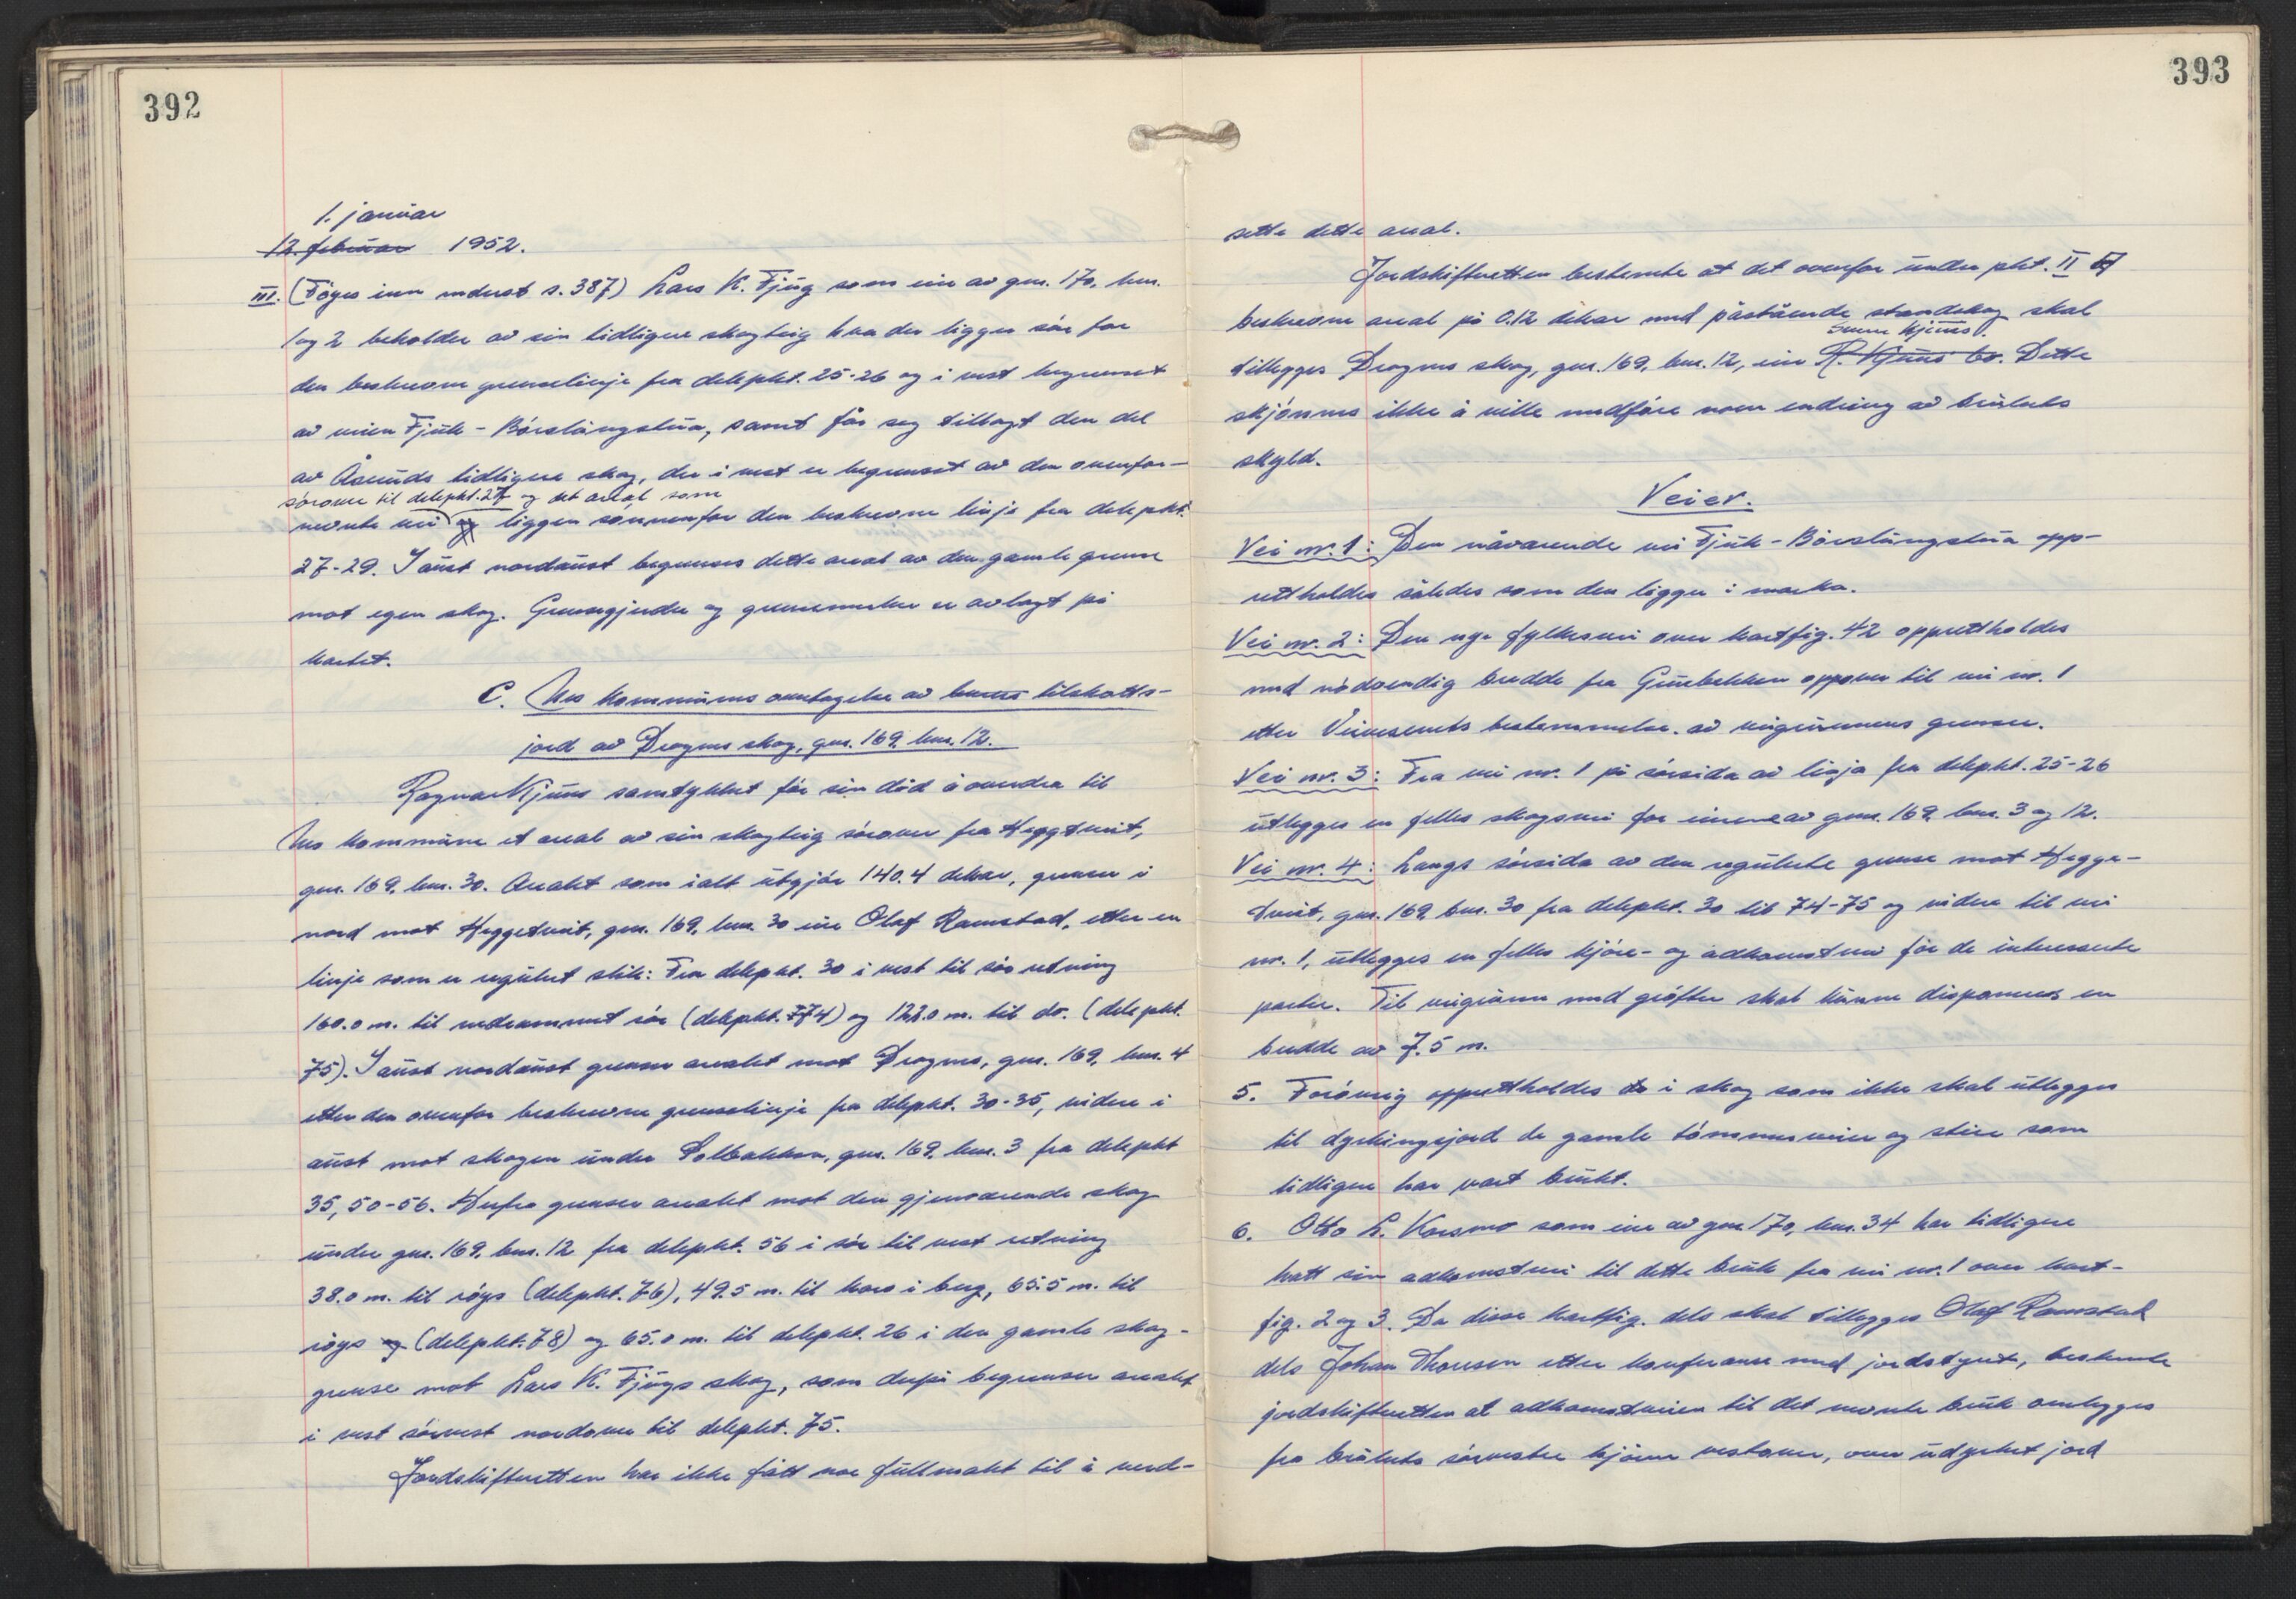 392
1. januar
12. februar 1952.
III. (Föyes inn nederst s. 387) Lars K. Fjug som eier av gnr. 170, bnr.
1 og 2 beholder av sin tidligere skogteig hva der ligger sör for
den beskrevne grenselinje fra delepkt. 25-26 og i vest begrenset
av veien Fjuk - Börslungstua, samt får seg tillagt den del
av Åsruds tidligere skog, der i vest er begrenset av den ovenfor-
sörover til delepkt. 27 og det areal som
nevnte vei og liggen sönnenfor den beskrevne linje fra delepkt.
27-29. I aust nordaust begrenses dette areal av den gamle grense
mot egen skog. Grensegjerder og grensemerker er avlagt på
kartet.
C. Nes kommunes overtagelse av bruns tilskotts-
jord av Dragnes skog, gnr. 169, bnr. 12.
Ragnar Kjuus samtykket för sin död å overdra til
Nes kommune et areal av sin skogteig sörover fra Heggetveit,
gnr. 169, bnr. 30. Arealet som ialt utgjör 140.4 dekar, grenser i
nord mot Heggetveit, gnr. 169, bnr. 30 eier Olaf Ramstad, etter en
linje som er regulert slik: Fra delepkt. 30 i vest til sör retning
160.0 m. til nedrammet rör (delepkt. 74) og 128.0 m. til do. (delepkt.
75). I aust nordaust grenser arealet mot Dragnes, gnr. 169, bnr. 4
etter den ovenfor beskrevne grenselinje fra delepkt. 30-35, videre i
aust mot skogen under Solbakken, gnr. 169, bnr. 3 fra delepkt
35, 50-56. Herfra grenser arealet mot den gjenværende skog
under gnr. 169, bnr. 12 fra delepkt. 56 i sör til vest retning
38.0 m. til röys (delepkt. 76), 49.5 m. til kors i berg, 65.5 m. til
röys og (delepkt. 78) og 65.0 m. til delepkt. 26 i den gamle skog-
grense mot Lars K. Fjugs skog, som derpå begrenser arealet
i vest sörvest nordover til delepkt. 75.
Jordskifteretten har ikke fått noe fullmakt til å verd-
393
sette dette areal.
Jordskifteretten bestemte at det ovenfor under pkt. II
beskrevne areal på 0.12 dekar med påstående standskog skal
Sverre Kjuus.
tillegges Dragnes skog, gnr. 169, bnr. 12, eier R. Kjuus bo. Dette
skjönnes ikke å ville medföre noen endring av brukets
skyld.
Veier.
Vei nr. 1: Den nåværende vei Fjuk - Börslungstua opp-
rettholdes således som den ligger i marka.
Vei nr. 2: Den nye fylkesvei over kartfig. 42 opprettholdes
med nödvendig bredde fra Grubekken oppover til vei nr. 1
etter Veivesenets bestemmelse av veigrunnens grenser.
Vei nr. 3: Fra vei nr. 1 på sörsida av linja fra delepkt. 25-26
utlegges en felles skogsvei for eierne av gnr. 169, bnr. 3 og 12.
Vei nr. 4: Langs sörsida av den regulerte grense mot Hegge-
tveit, gnr. 169, bnr. 30 fra delepkt. 30 til 74-75 og videre til vei
nr. 1, utlegges en felles kjöre- og adkomstvei för de interesserte
parter. Til veigrunn med gröfter skal kunne disponeres en
bredde av 7.5 m.
5. Forövrig opprettholdes de i skog som ikke skal utlegges
til dyrkingsjord de gamle tömmerveier og stier som
tidligere har vært brukt.
6. Otto L. Korsmo som eier av gnr. 170, bnr. 34 har tidligere
hatt sin adkomstvei til dette bruk fra vei nr. 1 over kart-
fig. 2 og 3. Da disse kartfig. dels skal tillegges Olaf Ramstad
dels Johan Thoresen etter konferanse med jordstyret, bestemte
jordskifteretten at adkomstveien til det nevnte bruk omlegges
fra brukets sörvestre hjörne vestover, over udyrket jord